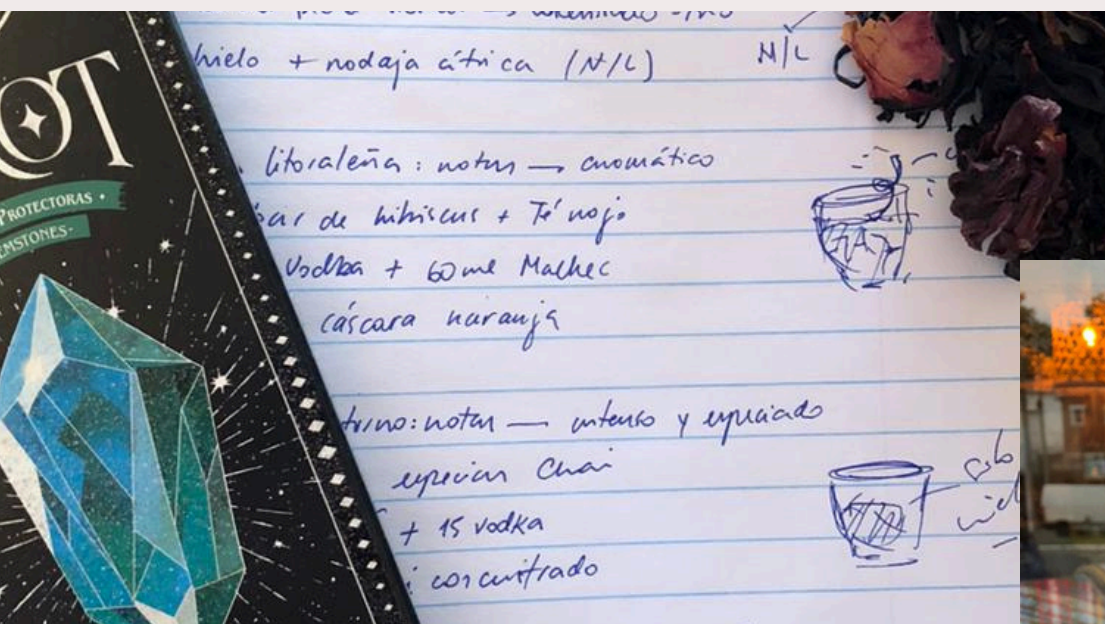 OT
PROTECTORAS •
EMSTONES-
hielo + rodaja cítrica (N/L)
N/L
litoraleña: notas — aromático
de hibiscus + Té rojo
Vodka + 60 ml Malbec
cáscara naranja
notas — intenso y especiado
especias Chai
+ 15 vodka
concentrado